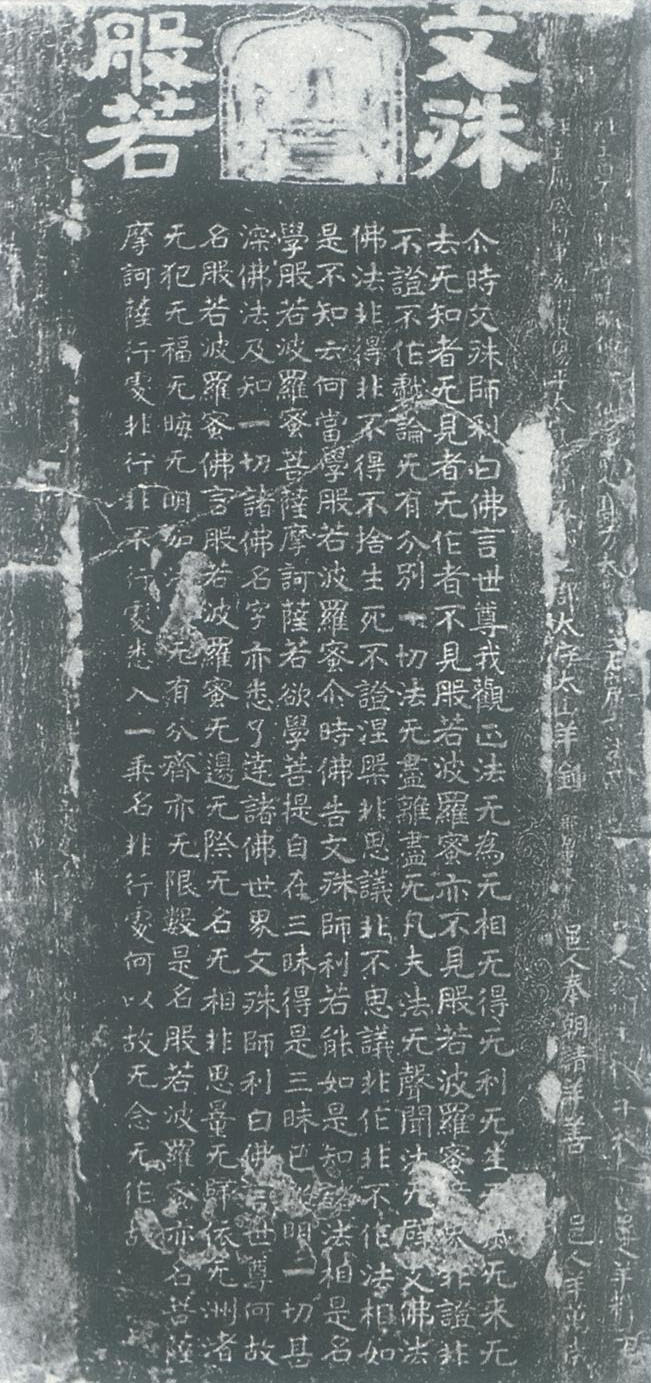 文殊
般若
尒時文殊師利白佛言世尊我觀正法无為无相无得无利无生无来无
去无知者无見者无作者不見般若波羅蜜亦不見般若波羅蜜非證非
不證不作戲論无有分別一切法无盡離盡无凡夫法无聲聞法无辟支佛法
佛法非得非不得不捨生死不證涅槃非思議非不思議非作非不作法相如
是不知云何當學般若波羅蜜尒時佛告文殊師利若能如是知諸法相是名
學般若波羅蜜菩薩摩訶薩若欲學菩提自在三昧得是三昧已明一切甚
深佛法及知一切諸佛名字亦悉了達諸佛世界文殊師利白佛言世尊何故
名般若波羅蜜佛言般若波羅蜜无邊无際无名无相非思量无歸依无洲渚
无犯无福无晦无明如法无有分齊亦无限數是名般若波羅蜜亦名菩薩
摩訶薩行處非行非不行處悉入一乘名非行處何以故无念无作故
太山羊釗
邑人奉朝請羊善
邑人羊